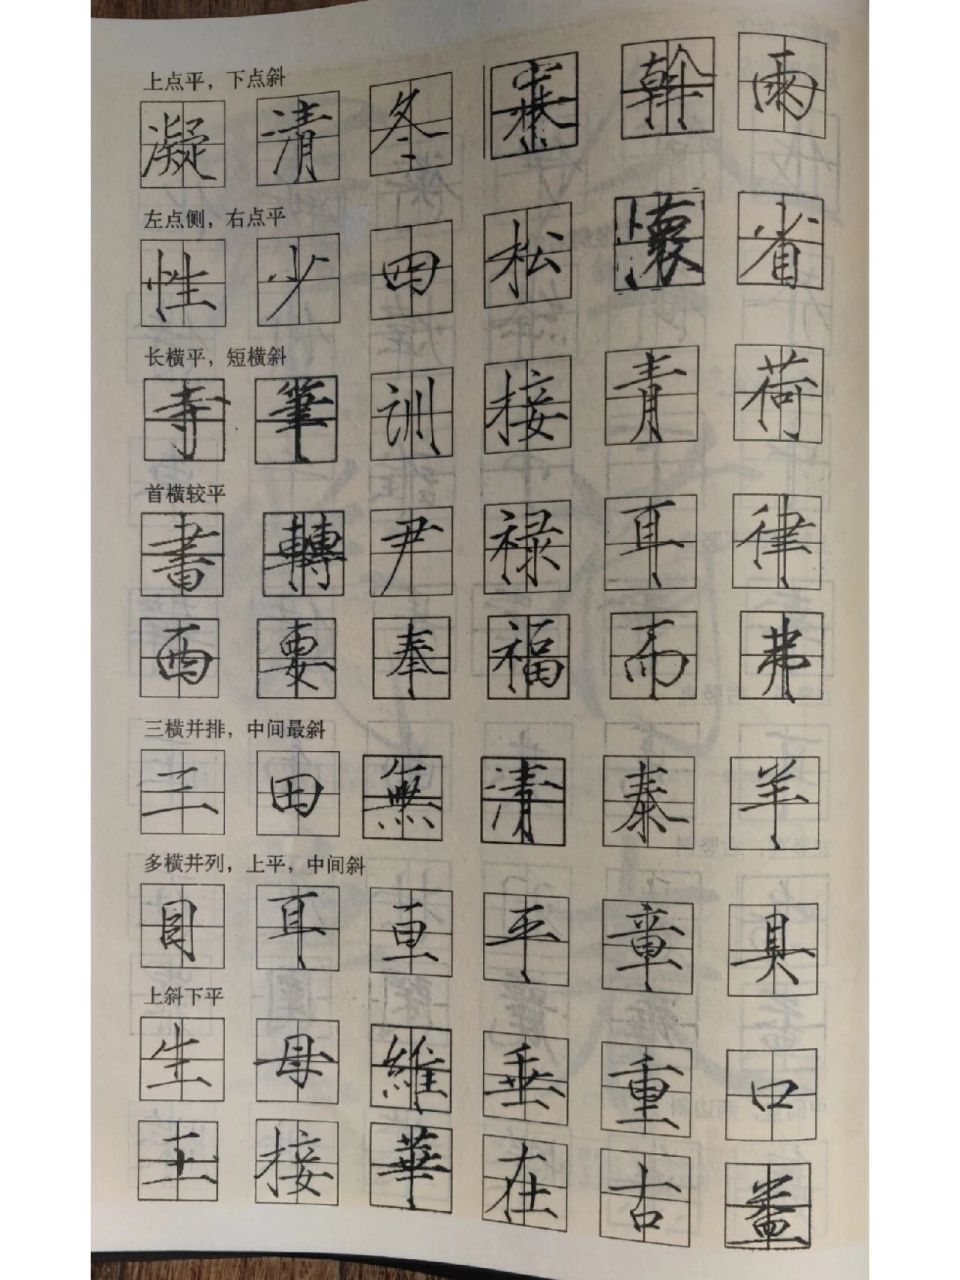 上点平，下点斜
凝 清 冬 寨 幹 雨
左点侧，右点平
性 少 四 松 懷 省
长横平，短横斜
寺 筆 训 接 青 荷
首横较平
書 轉 尹 禄 耳 律
西 要 奉 福 而 弗
三横并排，中间最斜
三 田 無 清 泰 羊
多横并列，上平，中间斜
目 耳 亘 平 童 具
上斜下平
生 母 維 垂 重 口
王 接 華 在 古